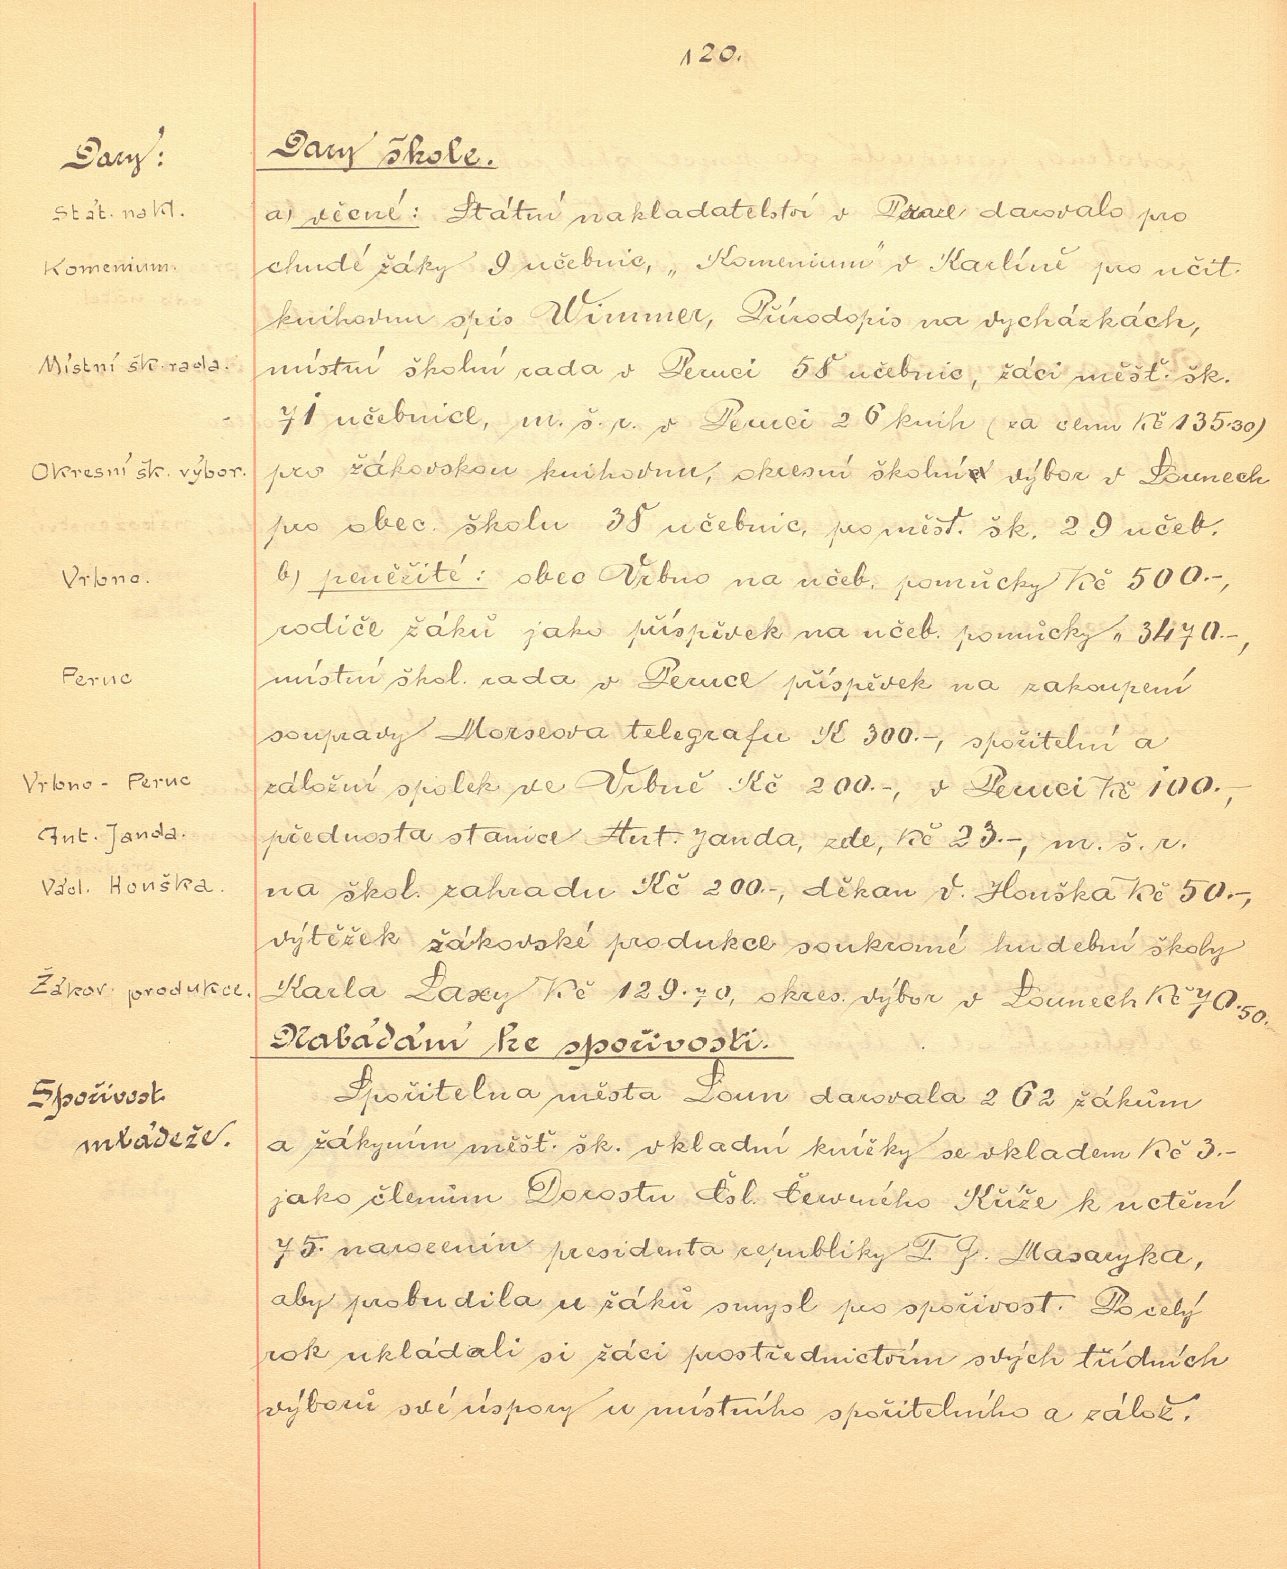 120.
Dary:
Dary škole.
Stát. nakl.
a) věcné: Státní nakladatelství v Praze darovalo pro
Komenium.
chudé žáky 9 učebnic, „Komenium" v Karlíně pro učit.
knihovnu spis Wimmer, Přírodopis na vycházkách,
Místní šk. rada.
místní školní rada v Peruci 58 učebnic, žáci měšť. šk.
71 učebnice, m. š. r. v Peruci 26 knih (za cenu Kč 135.30)
Okresní šk. výbor.
pro žákovskou knihovnu, okresní školní výbor v Lounech
pro obec. školu 38 učebnic, pro měšť. šk. 29 učeb.
Vrbno.
b) peněžité: obec Vrbno na učeb. pomůcky Kč 500.-,
rodiče žáků jako příspěvek na učeb. pomůcky „ 3470.-,
Peruc
místní škol. rada v Peruce příspěvek na zakoupení
soupravy Morseova telegrafu K 300.-, spořitelní a
Vrbno - Peruc
záložní spolek ve Vrbně Kč 200.-, v Peruci Kč 100.-,
Ant. Janda.
přednosta stanice Ant. Janda, zde, Kč 23.-, m. š. r.
Václ. Houška.
na škol. zahradu Kč 200.-, děkan V. Houška Kč 50.-,
výtěžek žákovské produkce soukromé hudební školy
Žákov. produkce.
Karla Laxy Kč 129.70, okres. výbor v Lounech Kč 70.50.
Nabádání ke spořivosti.
Spořivost
mládeže.
Spořitelna města Loun darovala 262 žákům
a žákyním měšť. šk. vkladní knížky se vkladem Kč 3.-
jako členům Dorostu Čsl. Červného Kříže k uctění
75. narozenin presidenta republiky T. G. Masaryka,
aby probudila u žáků smysl pro spořivost. Po celý
rok ukládali si žáci prostřednictvím svých třídních
výborů své úspory u místního spořitelního a zálož.